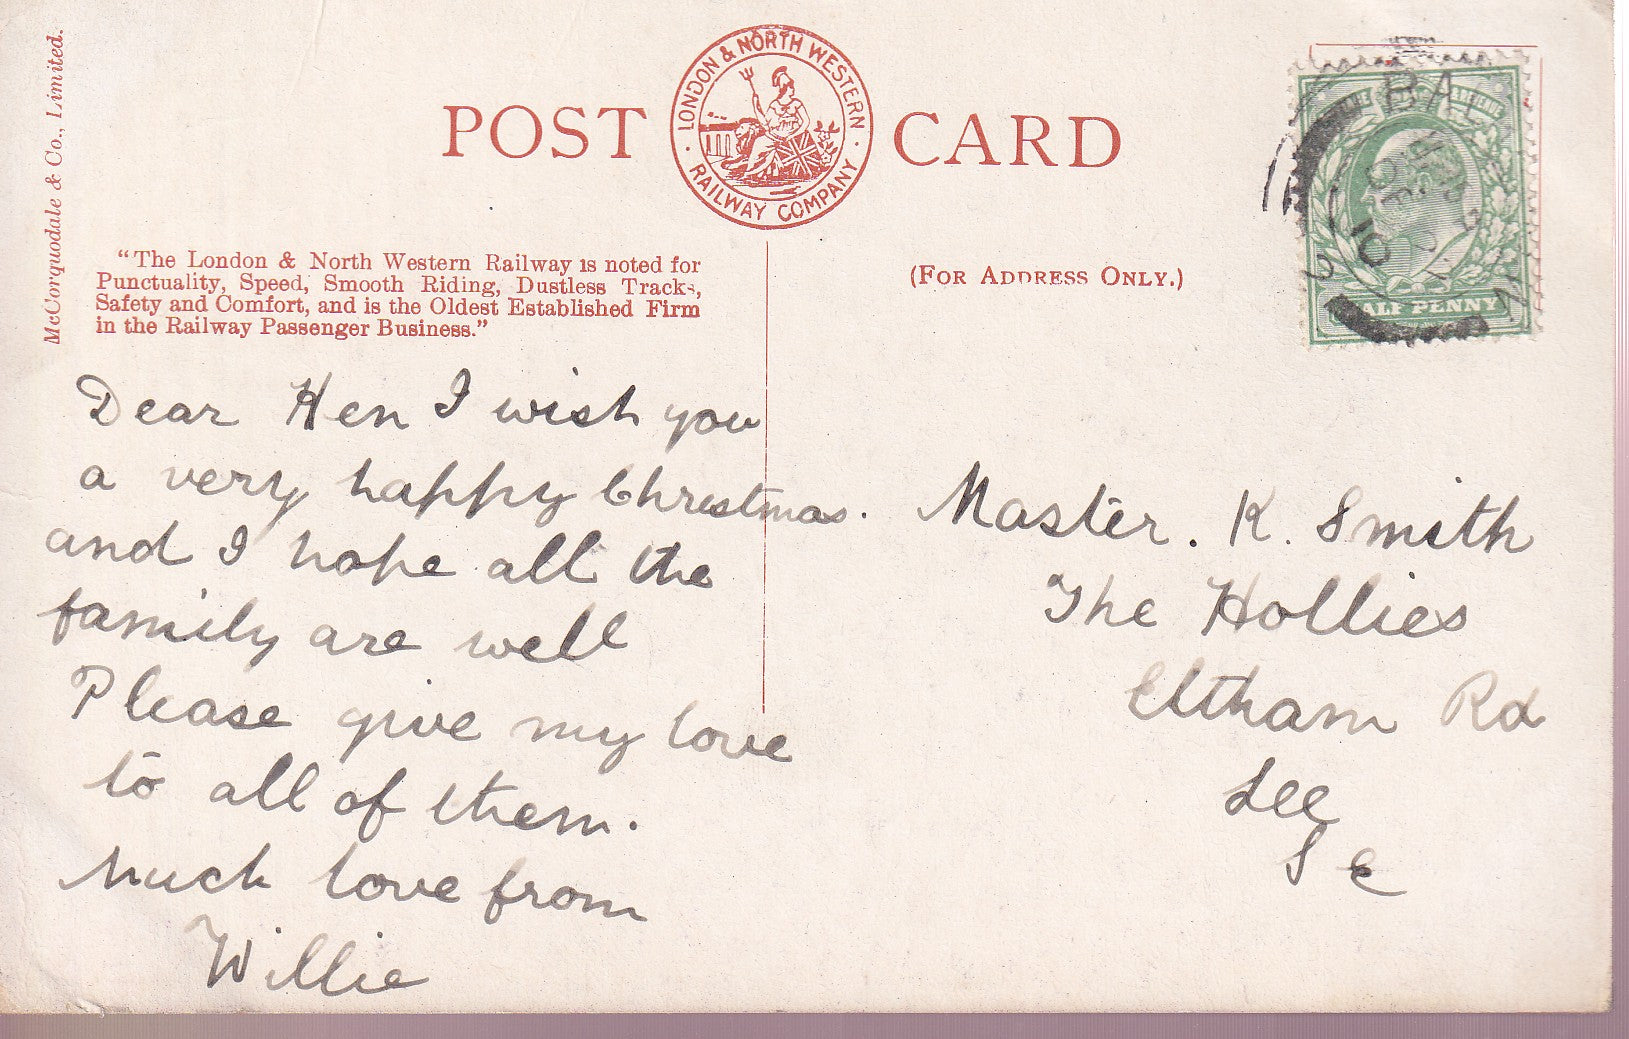 McCorquodale & Co., Limited.
POST CARD
LONDON & NORTH WESTERN
RAILWAY COMPANY
"The London & North Western Railway is noted for
Punctuality, Speed, Smooth Riding, Dustless Tracks,
Safety and Comfort, and is the Oldest Established Firm
in the Railway Passenger Business."
(FOR ADDRESS ONLY.)
HALF PENNY
Dear Hen I wish you
a very happy Christmas.
and I hope all the
family are well
Please give my love
to all of them.
Much love from
Willie
Master. K. Smith
The Hollies
Eltham Rd
Lee
S E